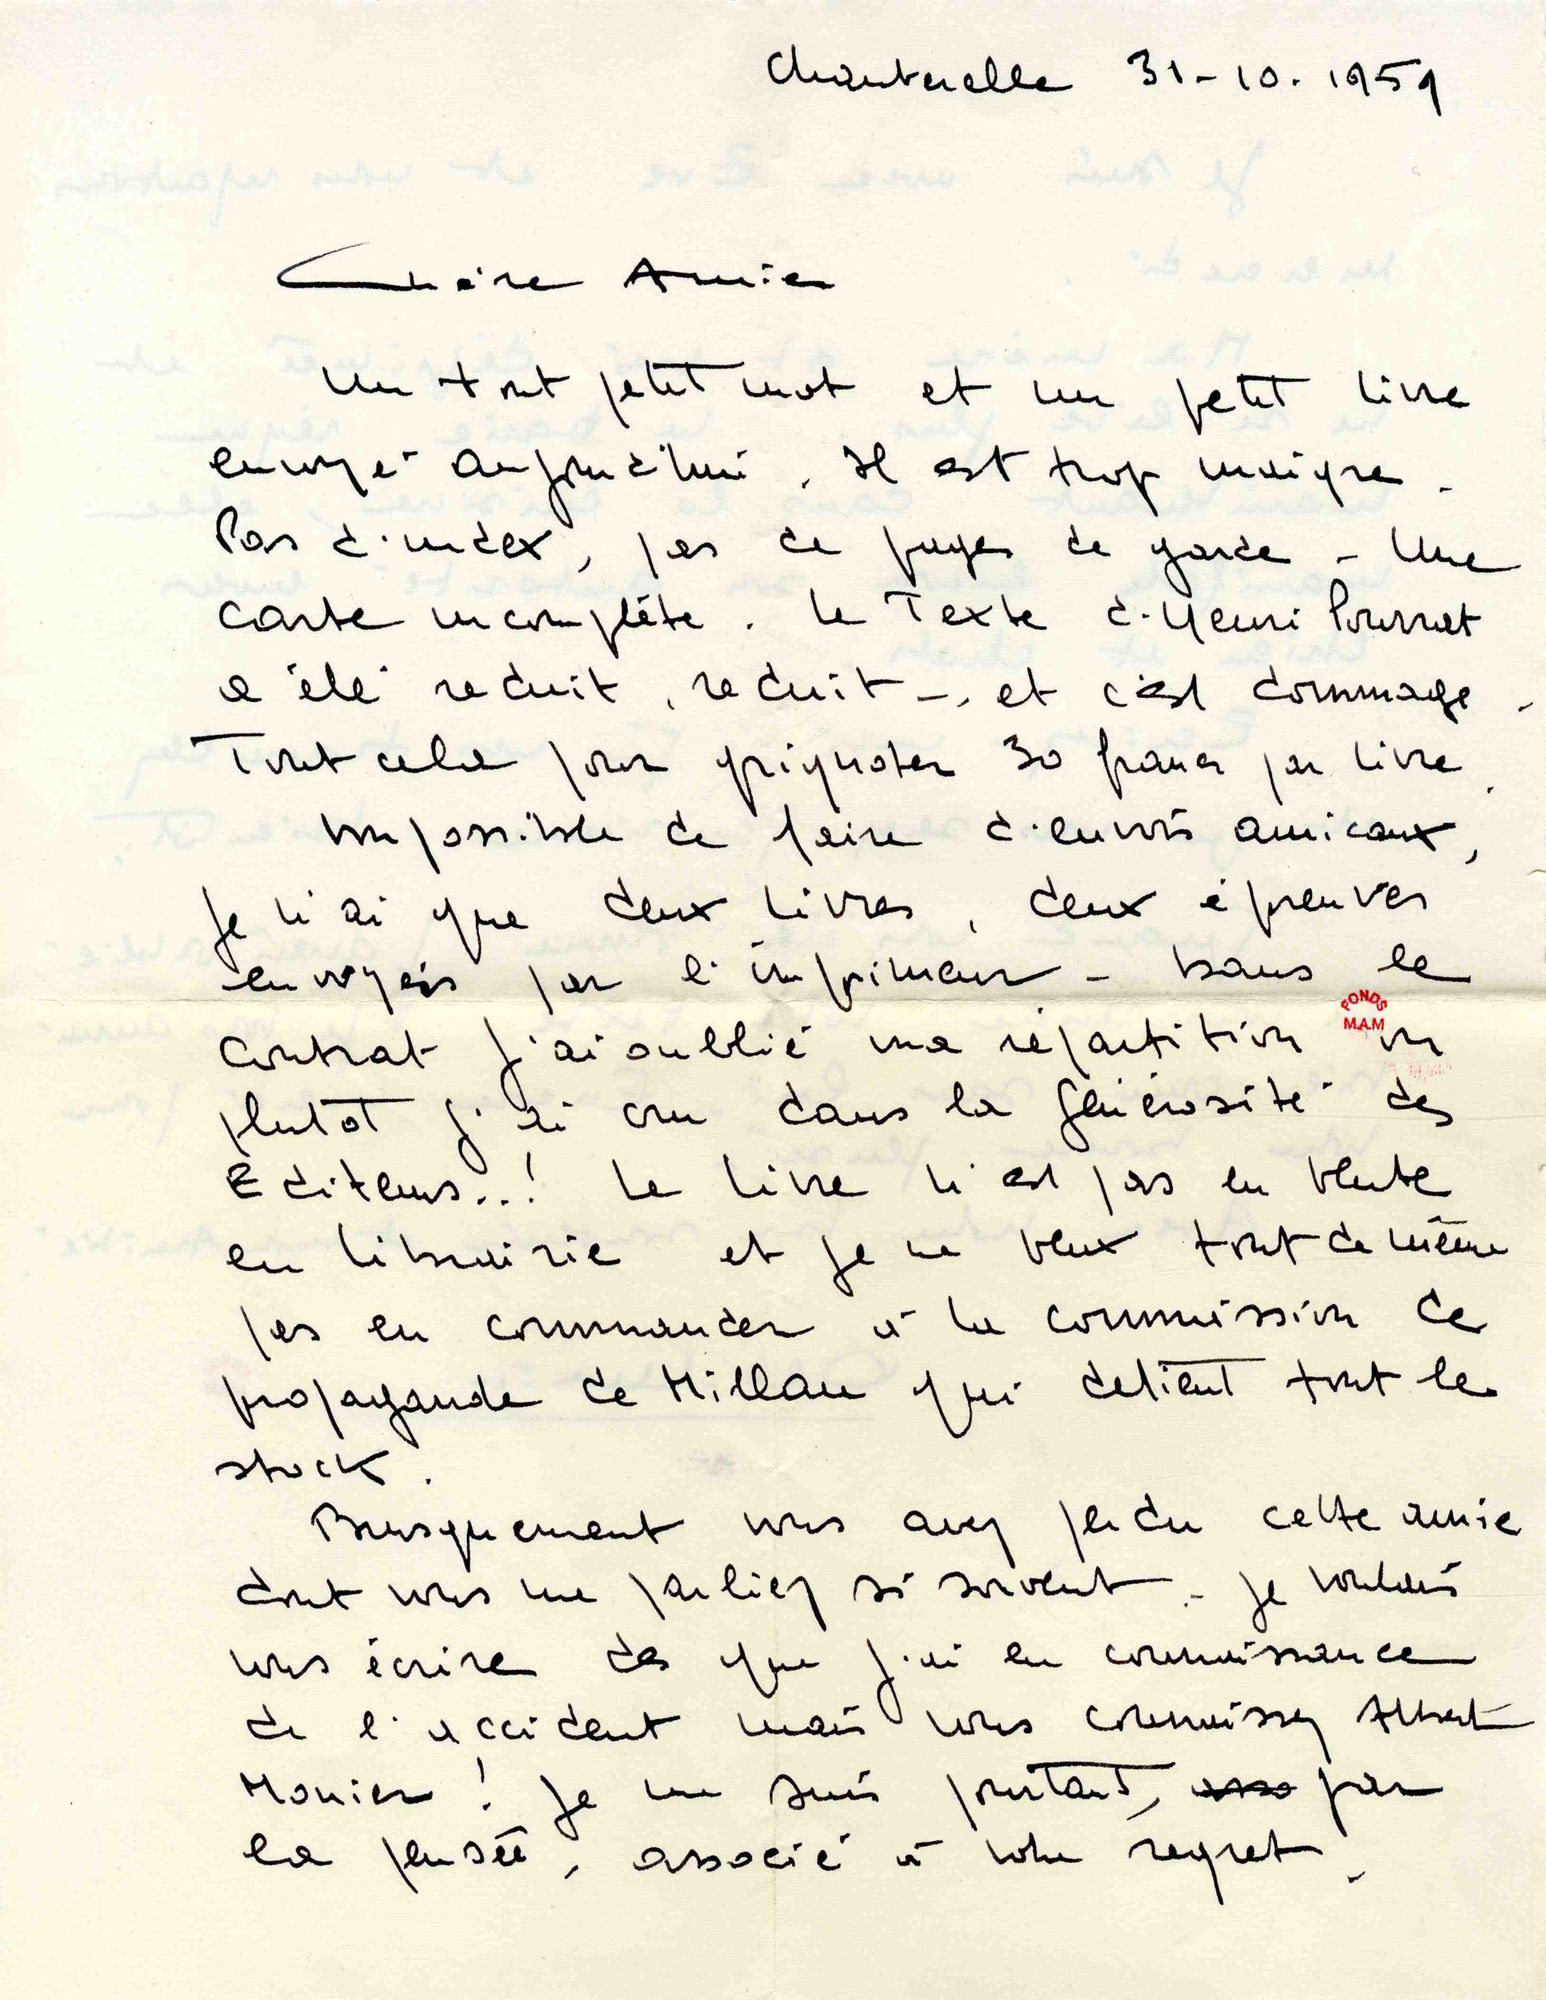 Chanterelle 31-10-1959
Chère Amie
Un tout petit mot et un petit livre
envoyé aujourd'hui. Il est trop maigre.
Pas d'index, pas de pages de garde - Une
carte incomplète. Le Texte d'Henri Pourrat
a été réduit, réduit -, et c'est dommage.
Tout cela pour grignoter 30 francs par livre.
Impossible de faire d'envois amicaux,
je n'ai que deux livres, deux épreuves
envoyés par l'imprimeur - Dans le
contrat j'ai oublié ma répartition ou
FONDS
M.A.M
plutôt j'ai cru dans la générosité des
Editeurs..! Le livre n'est pas en vente
en librairie et je ne veux tout de même
pas en commander à la commission de
propagande de Millau qui detient tout le
stock.
Brusquement vous avez perdu cette amie
dont vous me parliez si souvent - je voulais
vous écrire dès que j'ai eu connaissance
de l'accident mais vous connaissez Albert
Monier ! je me suis pourtant, par
la pensée, associé à votre regret.